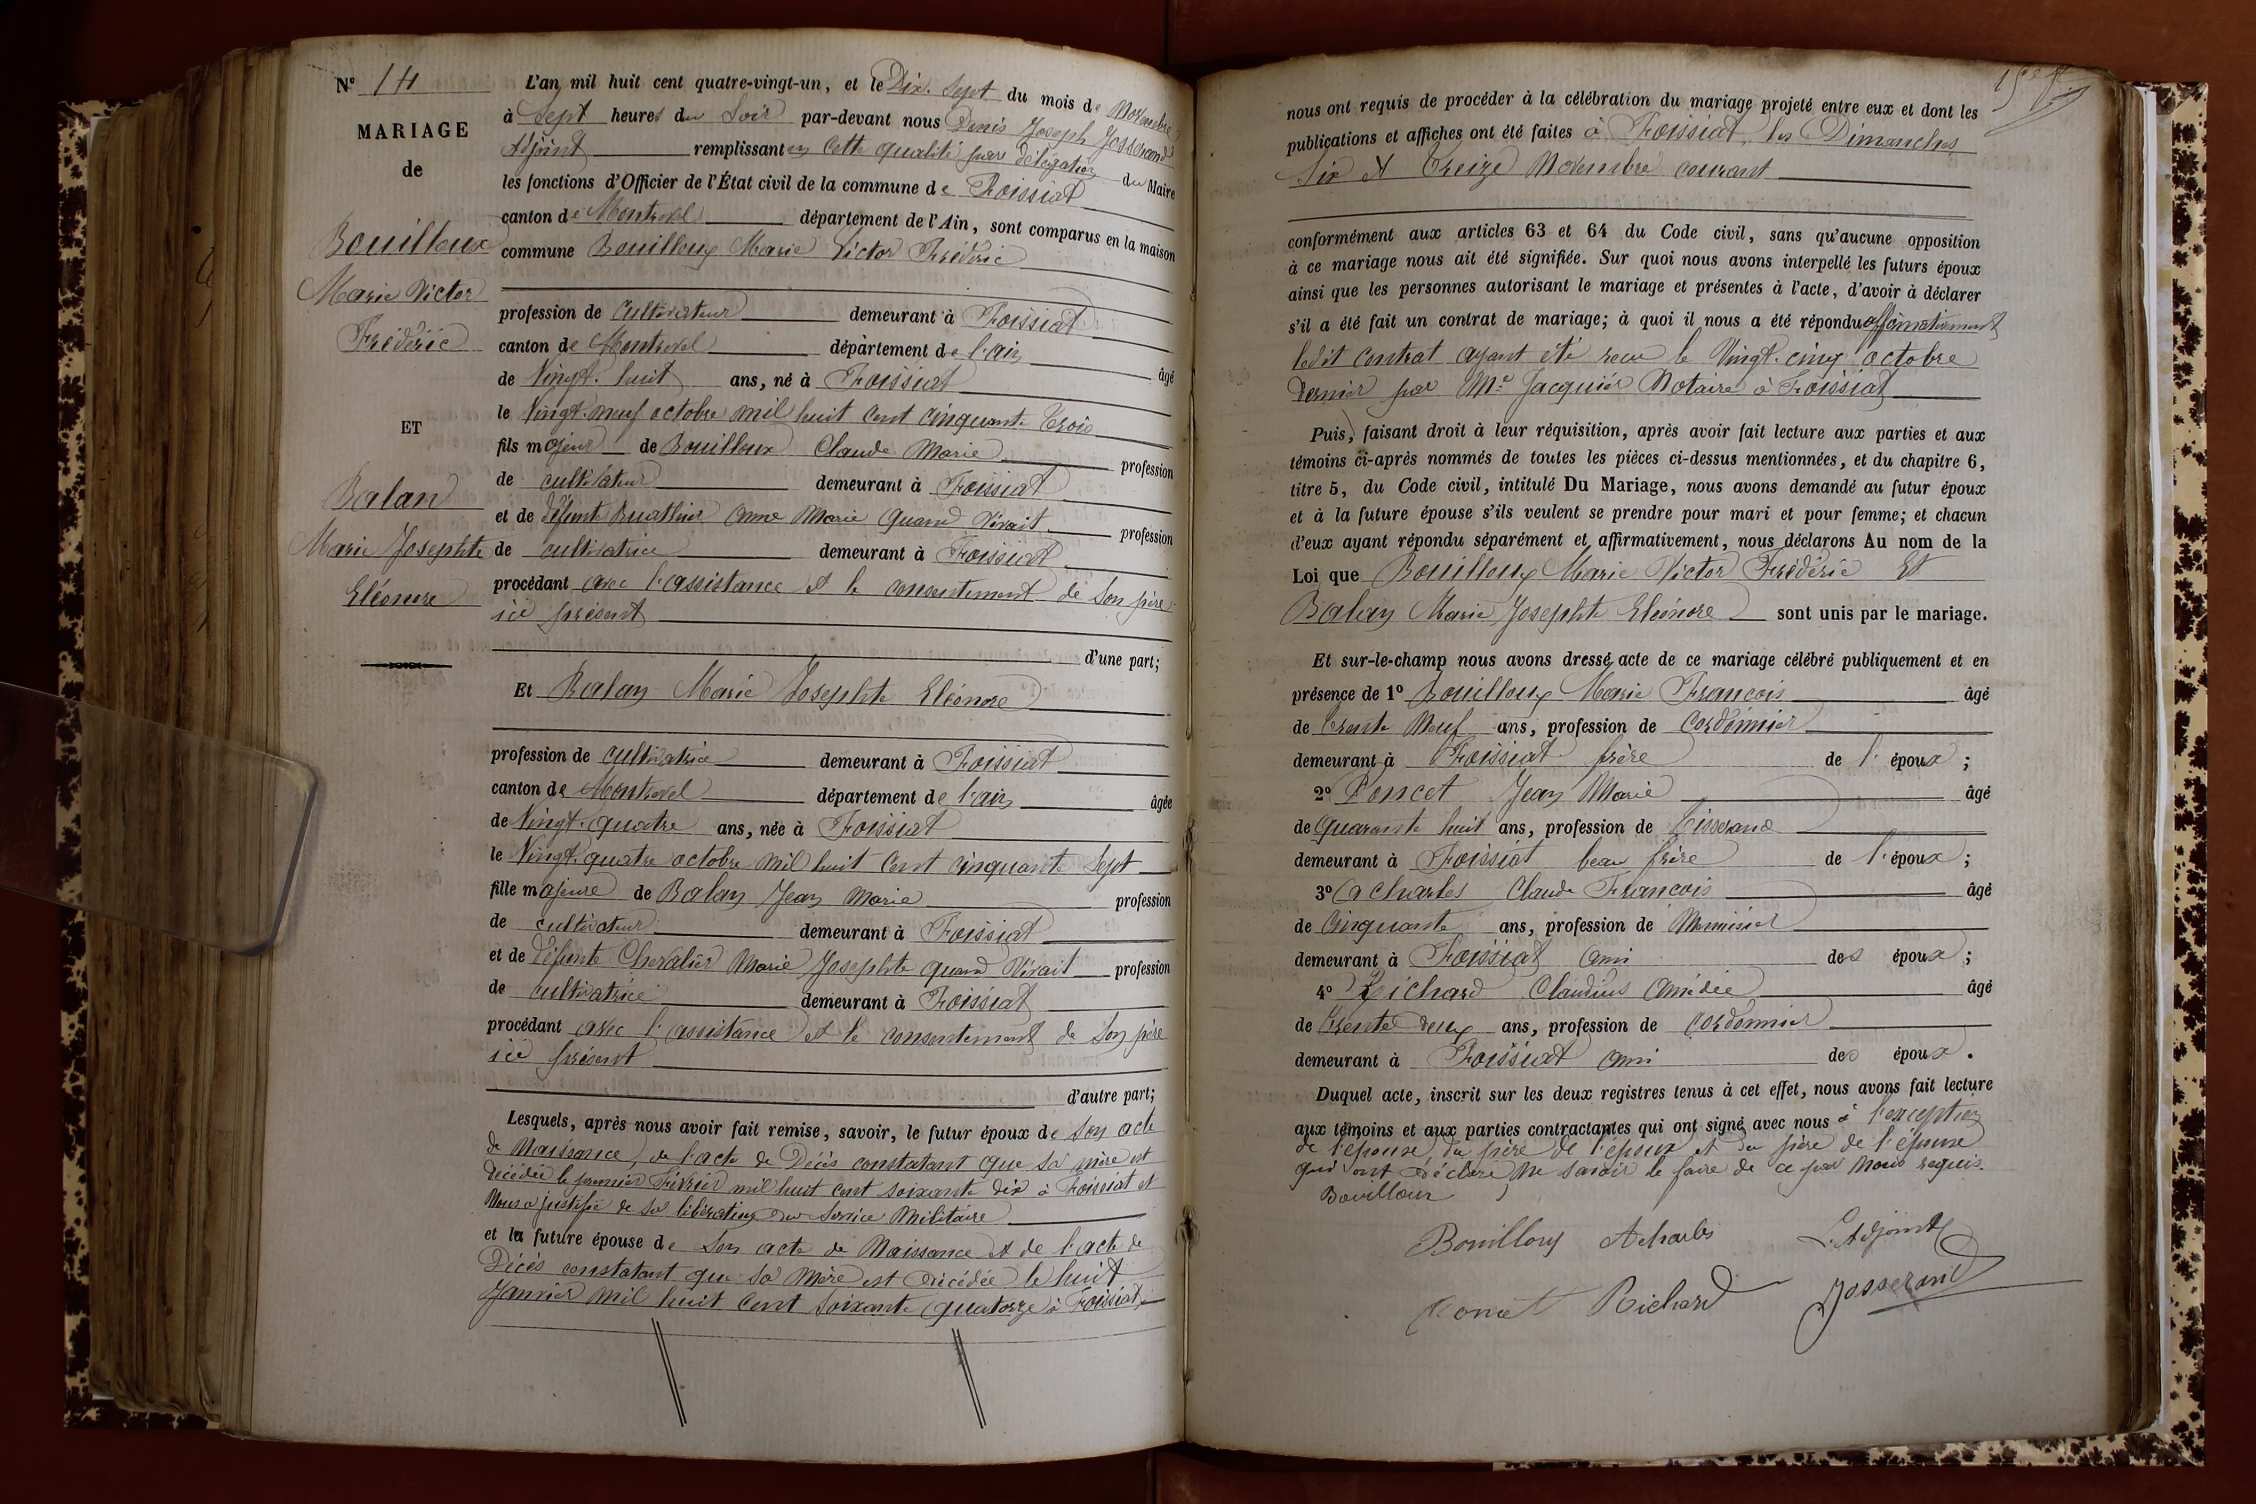 N° 14
MARIAGE
de
Bouilloux
Marie Victor
Frédéric
ET
Balan
Marie Josephte
Eléonore
L'an mil huit cent quatre-vingt-un, et le Dix-Sept du mois de Novembre
à Sept heures du Soir par-devant nous Denis Joseph Josserand
Adjoint remplissant en cette qualité par délégation du Maire
les fonctions d'Officier de l'État civil de la commune de Foissiat
canton de Montrevel département de l'Ain, sont comparus en la maison
commune Bouilloux Marie Victor Frédéric
profession de cultivateur demeurant à Foissiat
canton de Montrevel département de l'ain âgé
de Vingt-huit ans, né à Foissiat
le Vingt-neuf octobre mil huit cent cinquante trois
fils majeur de Bouilloux Claude Marie profession
de cultivateur demeurant à Foissiat
et de défunte Buathier anne Marie quand vivait profession
de cultivatrice demeurant à Foissiat
procédant avec l'assistance et le consentement de son père
ici présent
d'une part;
Et Balan Marie Josephte Eléonore
profession de cultivatrice demeurant à Foissiat
canton de Montrevel département de l'ain âgée
de Vingt-quatre ans, née à Foissiat
le Vingt-quatre octobre mil huit cent cinquante Sept
fille majeure de Balan Jean Marie profession
de cultivateur demeurant à Foissiat
et de défunte Chevalier Marie Josephte quand vivait profession
de cultivatrice demeurant à Foissiat
procédant avec l'assistance et le consentement de son père
ici présent
d'autre part;
Lesquels, après nous avoir fait remise, savoir, le futur époux de son acte
de Naissance, de l'acte de Décès constatant que sa mère est
décédée le premier Février mil huit cent soixante dix à Foissiat et
Nous a justifié de sa libération du Service Militaire
et la future épouse de son acte de Naissance et de l'acte de
Décès constatant que sa Mère est décédée le huit
Janvier mil huit cent soixante quatorze à Foissiat
nous ont requis de procéder à la célébration du mariage projeté entre eux et dont les
publications et affiches ont été faites à Foissiat, les Dimanches
Six et Treize Novembre courant
conformément aux articles 63 et 64 du Code civil, sans qu'aucune opposition
à ce mariage nous ait été signifiée. Sur quoi nous avons interpellé les futurs époux
ainsi que les personnes autorisant le mariage et présentes à l'acte, d'avoir à déclarer
s'il a été fait un contrat de mariage; à quoi il nous a été répondu affirmativement
ledit contrat ayant été recu le Vingt-cinq octobre
dernier par Me Jacquier Notaire à Foissiat
Puis, faisant droit à leur réquisition, après avoir fait lecture aux parties et aux
témoins ci-après nommés de toutes les pièces ci-dessus mentionnées, et du chapitre 6,
titre 5, du Code civil, intitulé Du Mariage, nous avons demandé au futur époux
et à la future épouse s'ils veulent se prendre pour mari et pour femme; et chacun
d'eux ayant répondu séparément et affirmativement, nous déclarons Au nom de la
Loi que Bouilloux Marie Victor Frédéric Et
Balan Marie Josephte Eléonore sont unis par le mariage.
Et sur-le-champ nous avons dressé acte de ce mariage célébré publiquement et en
présence de 1° Bouilloux Marie Francois âgé
de Trente Neuf ans, profession de cordonnier
demeurant à Foissiat frère de l'époux;
2° Poncet Jean Marie âgé
de quarante huit ans, profession de tisserand
demeurant à Foissiat beau frère de l'époux;
3° acharles Claude Francois âgé
de Cinquante ans, profession de Menuisier
demeurant à Foissiat ami des époux;
4° Richard Claudius amédée âgé
de Trente deux ans, profession de cordonnier
demeurant à Foissiat ami des époux.
Duquel acte, inscrit sur les deux registres tenus à cet effet, nous avons fait lecture
aux témoins et aux parties contractantes qui ont signé avec nous à l'exception
de l'épouse, du père de l'époux et du père de l'épouse
qui ont déclaré ne savoir le faire de ce par Nous requis.
Bouilloux
Bouilloux Acharles L'Adjoint
Poncet Richard Josserand